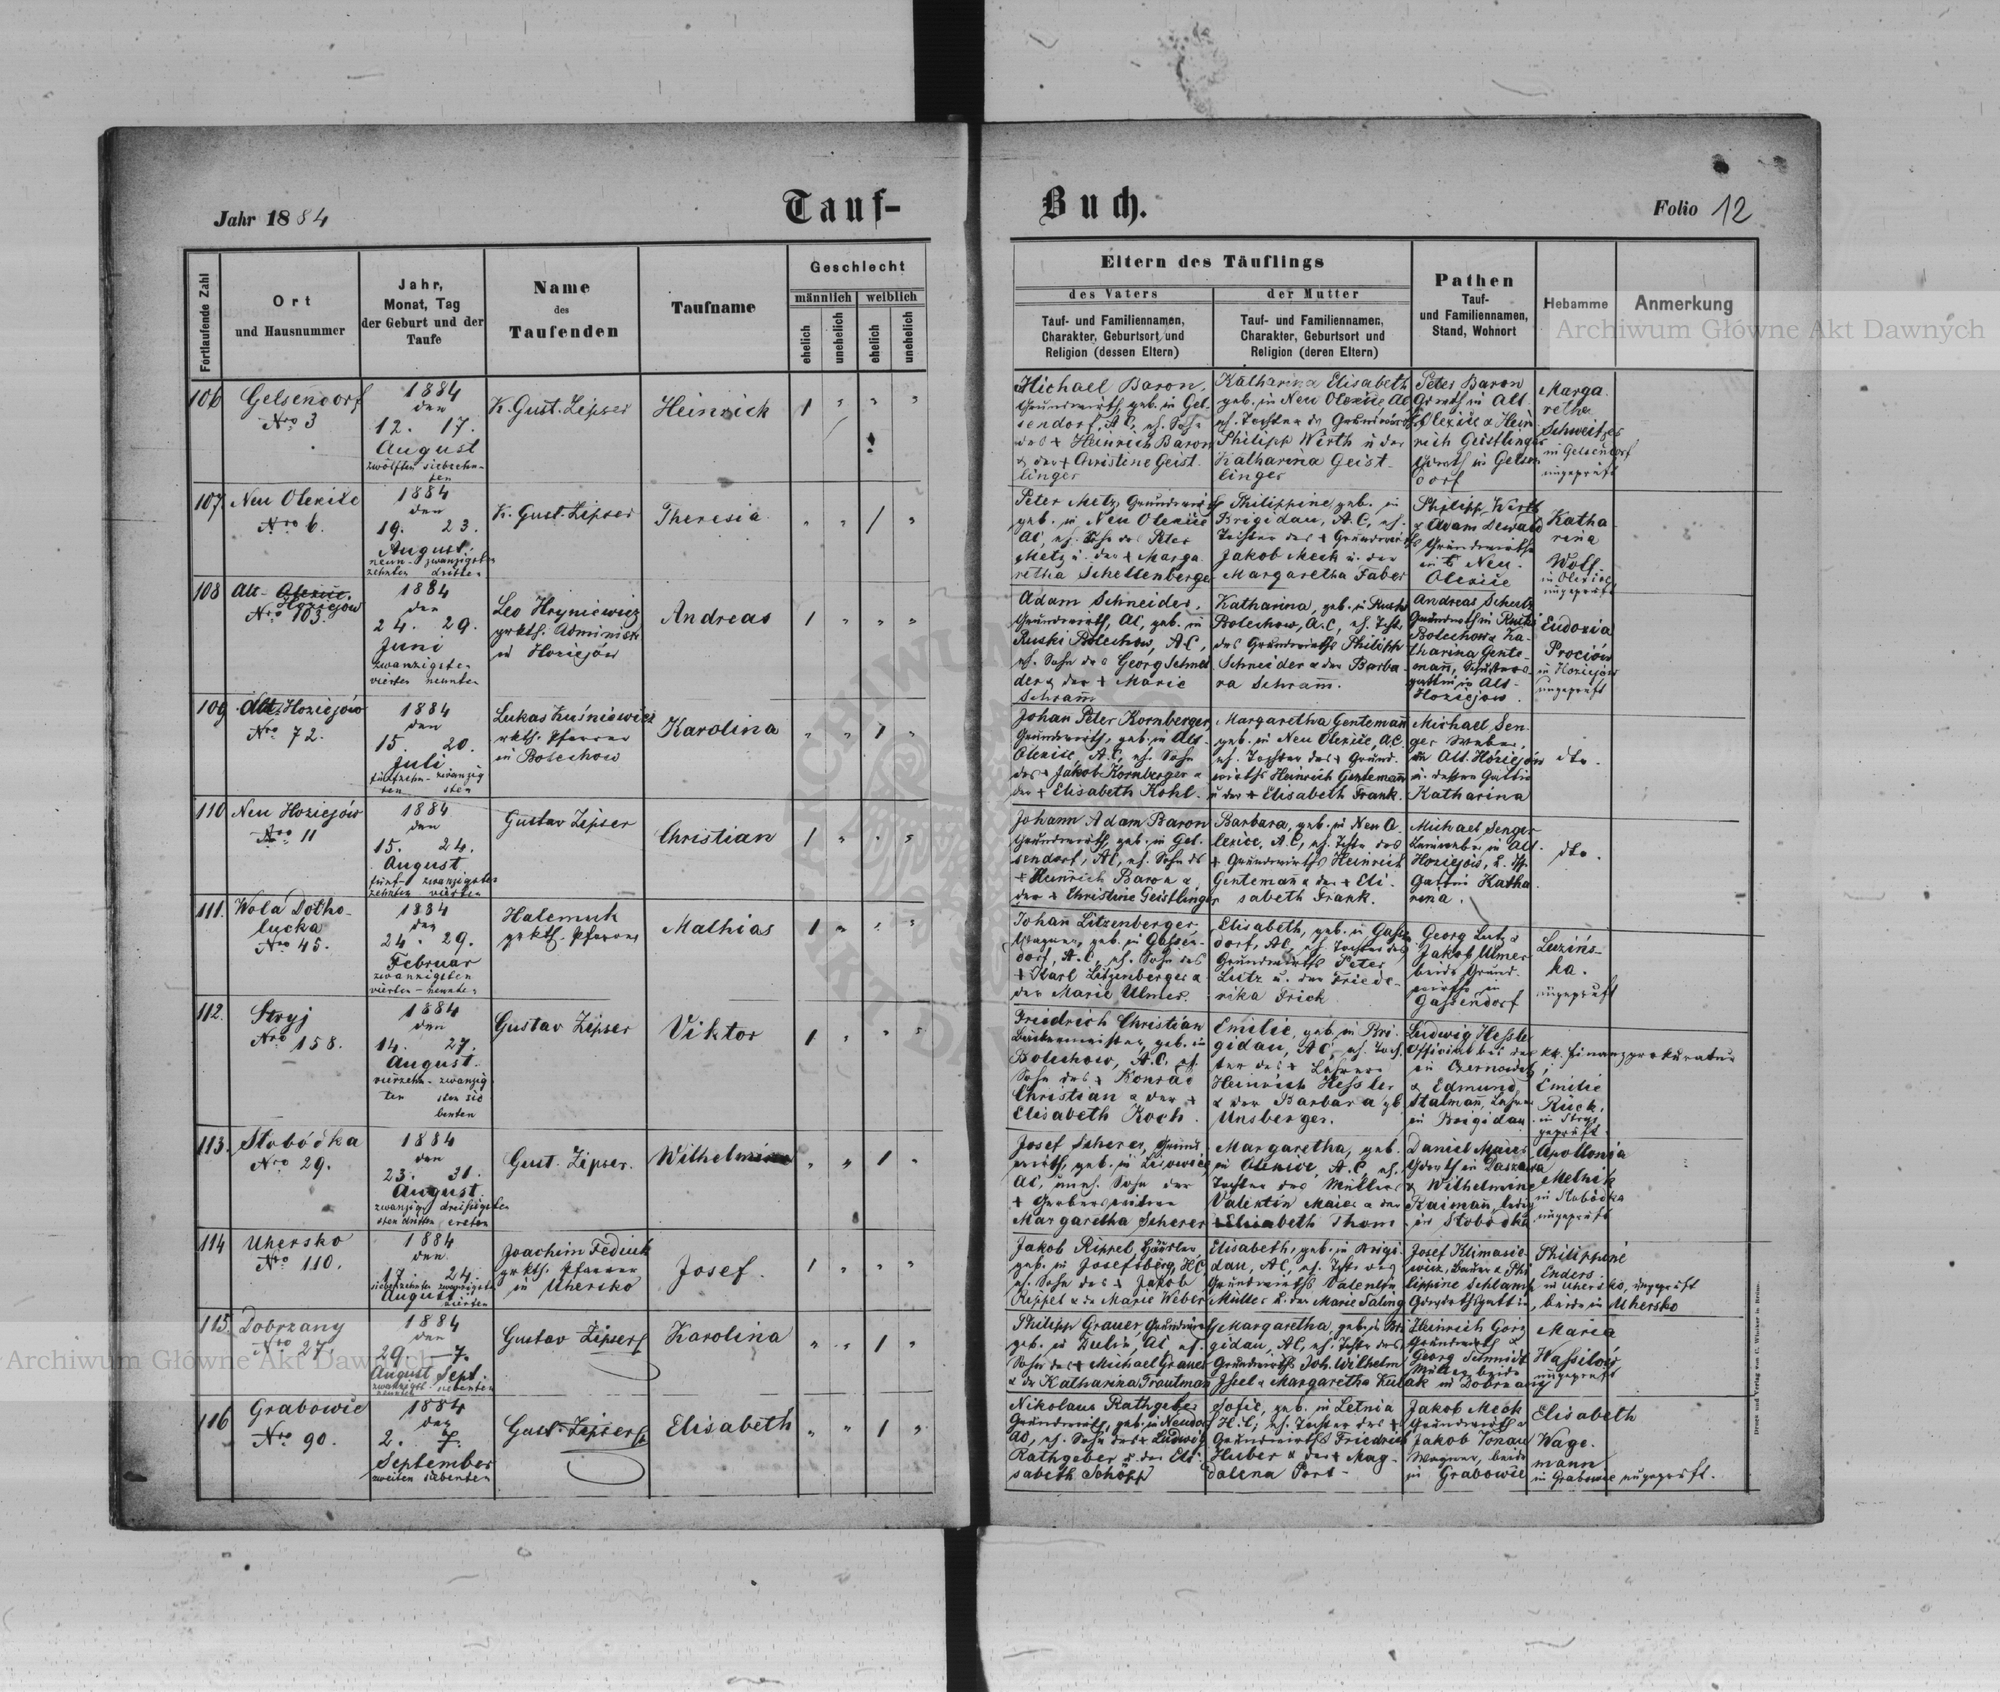 Jahr 1884
Tauf-
Buch.
Folio 12
Fortlaufende Zahl
Ort
und Hausnummer
Jahr,
Monat, Tag
der Geburt und der
Taufe
Name
des
Taufenden
Taufname
Geschlecht
männlich
weiblich
ehelich
unehelich
ehelich
unehelich
Eltern des Täuflings
des Vaters
der Mutter
Tauf- und Familiennamen,
Charakter, Geburtsort und
Religion (dessen Eltern)
Tauf- und Familiennamen,
Charakter, Geburtsort und
Religion (deren Eltern)
Pathen
Tauf-
und Familiennamen,
Stand, Wohnort
Hebamme
Anmerkung
Archiwum Główne Akt Dawnych
106
Gelsendorf
Nro 3
1884
den
12. 17.
August
zwölften siebzehn-
ten
K. Gust. Zipser
Heinrich
1 " " "
Michael Baron,
Grundwirth, geb. in Gel-
sendorf, AC, eh. Sohn
des + Heinrich Baron
& der + Christine Geist-
linger
Katharina Elisabeth
geb. in Neu Olexice AC
eh. Tochter des Grundwirths
Philipp Wirth u der
Katharina Geist-
linger
Peter Baron
Grwth in Alt-
Olexice & Hein-
rich Geistlinger
Grwth in Gelsen
dorf
Marga
retha
Schweitzer
in Gelsendorf
ungeprüft
107
Neu Olexice
Nro 6.
1884
den
19. 23.
August
neun- zwanzigsten
zehnten dritten
K. Gust. Zipser
Theresia
" " / "
Peter Metz, Grundwirth
geb. in Neu Olexice
AC, eh. Sohn des Peter
Metz u. der + Marga
retha Schellenberger
Philippine geb. in
Brigidau, A.C, eh.
Tochter des + Grundwirths
Jakob Meck u. der
Margaretha Faber
Philipp Wirth
& Adam Dewald
Grundwirthe
in Neu-
Olexice
Katha-
rina
Wolf
in Olexice
ungeprüft
108
Alt- Olexice,
Hoziejow
Nro 103.
1884
den
24. 29.
Juni
zwanzigsten
vierten neunten
Leo Hryniewicz
grkth. Administr
in Hoziejów
Andreas
1 " " "
Adam Schneider,
Grundwirth, AC, geb. in
Ruski Bolechow, AC,
eh. Sohn des Georg Schnei
der & der + Marie
Schram̄
Katharina, geb. in Ruski
Bolechow, A.C, eh. Tocht.
des Grundwirths Philipp
Schneider & der Barba-
ra Schram̄.
Andreas Schutz
Grundwirth in Ruski
Bolechow & Ka-
tharina Gente-
man̄, Schusters-
gattin in Alt-
Hoziejow.
Eudoxia
Prociów
in Hoziejów
ungeprüft
109
Alt Hoziejów
Nro 72.
1884
den
15. 20.
Juli
fünfzehn- zwanzig
ten sten
Lukas Kuśniewicz
rkth. Pfarrer
in Bolechow
Karolina
" " 1 "
Johan Peter Kornberger
Grundwirth, geb. in Alt-
Olexice, A.C, eh. Sohn
des + Jakob Kornberger &
der + Elisabeth Kohl.
Margaretha Genteman̄
geb. in Neu Olexice, A.C.
eh. Tochter des + Grund-
wirths Heinrich Genteman̄
u der + Elisabeth Frank.
Michael Sen-
ger Weber,
in Alt. Hoziejów
u. dessen Gattin
Katharina
dto.
110
Neu Hoziejów
Nro 11
1884
den
15. 24.
August
fünf- zwanzigsten
zehnten vierten
Gustav Zipser
Christian
1 " " "
Johann Adam Baron
Grundwirth, geb. in Gel-
sendorf, AC, eh. Sohn ds
+ Heinrich Baron &
der + Christine Geistlinger
Barbara, geb. in Neu O-
lexice, A.C, eh. Tochtr des
+ Grundwirths Heinrich
Genteman̄ & der + Eli-
sabeth Frank.
Michael Senger
in Alt-
Hoziejów,
Gattin Katha
rina.
dto.
111.
Wola Dotho-
lucka
Nro 45.
1884
den
24. 29.
Februar
zwanzigsten
vierten - neunten
Halemuk
grkth. Pfarrer
Mathias
1 " " "
Johan̄ Litzenberger
Wagner, geb. in Gassen-
dorf, A.C, eh. Sohn des
+ Karl Litzenberger &
der Marie Ulmer.
Elisabeth, geb. in Gassen
dorf, AC, eh. Tochter des
Grundwirths Peter
Lutz u. der Friede-
rika Frich
Georg Lutz &
Jakob Ulmer
beide Grund-
wirthe in
Gassendorf
Luzińs-
ka.
ungeprüft
112.
Stryj
Nro 158.
1884
den
14. 27.
August.
vierzehn- zwanzig
ten sten sie
benten
Gustav Zipser
Viktor
1 " " "
Friedrich Christian
Bäckermeister, geb. in
Bolechow, A.C. eh.
Sohn des + Konrad
Christian & der +
Elisabeth Koch.
Emilie, geb. in Bri-
gidau, AC, eh. Toch-
ter des + Lehrers
Heinrich Hessler
& der Barbara gb
Unsberger.
Ludwig Hessler
Offizial bei der kk. Finanzprokuratur
in Czernowitz
& Edmund
Stalman̄, Lehrer
in Brigidau
Emilie
Rück,
in Stryj
geprüft.
113.
Slobódka
Nro 29.
1884
den
23. 31.
August
zwanzig- dreißigsten
sten dritten ersten
Gust. Zipser.
Wilhelmine
" " 1 "
Josef Scherer, Grund
wirth, geb. in
AC, uneh. Sohn der
+
Margaretha Scherer
Margaretha, geb.
in Olexice, A.C, eh.
Tochter des Müllers
Valentin Maier & der
+ Elisabeth Thom
Daniel Maier
Grwth in Daszawa
& Wilhelmine
Raiman̄, ledig
in Slobodka
Apollonia
Melnik
in Slobodka
ungeprüft
114
Uhersko
Nro 110.
1884
den
17. 24.
siebzehnten zwanzigsten
August vierten
Joachim Fediuk
grkth. Pfarrer
in Uhersko
Josef.
1 " " "
Jakob Rippel, Häusler,
geb. in Josefsberg, HC
eh. Sohn des + Jakob
Rippel & der Marie Weber
Elisabeth, geb. in Brigi-
dau, AC, eh. Tochter des
Grundwirths Valentin
Müller & der Marie Saling
Josef Klimasie-
wicz, Bauer & Phi
lippine Schlamp
Grundwthsgattin, beide in Uhersko
Philippine
Enders
in Uhersko, ungeprüft
115.
Dobrzany
Nro 27.
1884
den
29 - 7.
August Sept.
zwanzigst- siebenten
neunten
Gustav Zipser
Karolina
" " 1 "
Philipp Grauer Grundwirth
geb. in Dulib, AC eh.
Sohn des + Michael Grauer
& der Katharina Trautman
Margaretha, geb. in Bri
gidau, AC, eh. Tochter des
Grundwirths Joh. Wilhelm
Issel & Margaretha Kubak
Heinrich Görz
Grundwirth &
Georg Schmidt
Müller, beide
in Dobrzany
Maria
Wassilów
ungeprüft
116
Grabowie
Nro 90.
1884
den
2. 7.
September
zweiten siebenten
Gust. Zipser
Elisabeth
" " 1 "
Nikolaus Rathgeber
Grundwirth, geb. in Neudorf
AC, eh. Sohn des + Ludwig
Rathgeber & der Eli-
sabeth Schöpf
Sofie, geb. in Letnia
H.C, eh. Tochter des +
Grundwirths Friedrich
Huber & der + Mag-
dalena Pors-
Jakob Mech
Grundwirth &
Jakob Tonau
Wagner, beide
in Grabowie
Elisabeth
Wage-
mann
in Grabowie ungeprüft.
Archiwum Główne Akt Dawnych